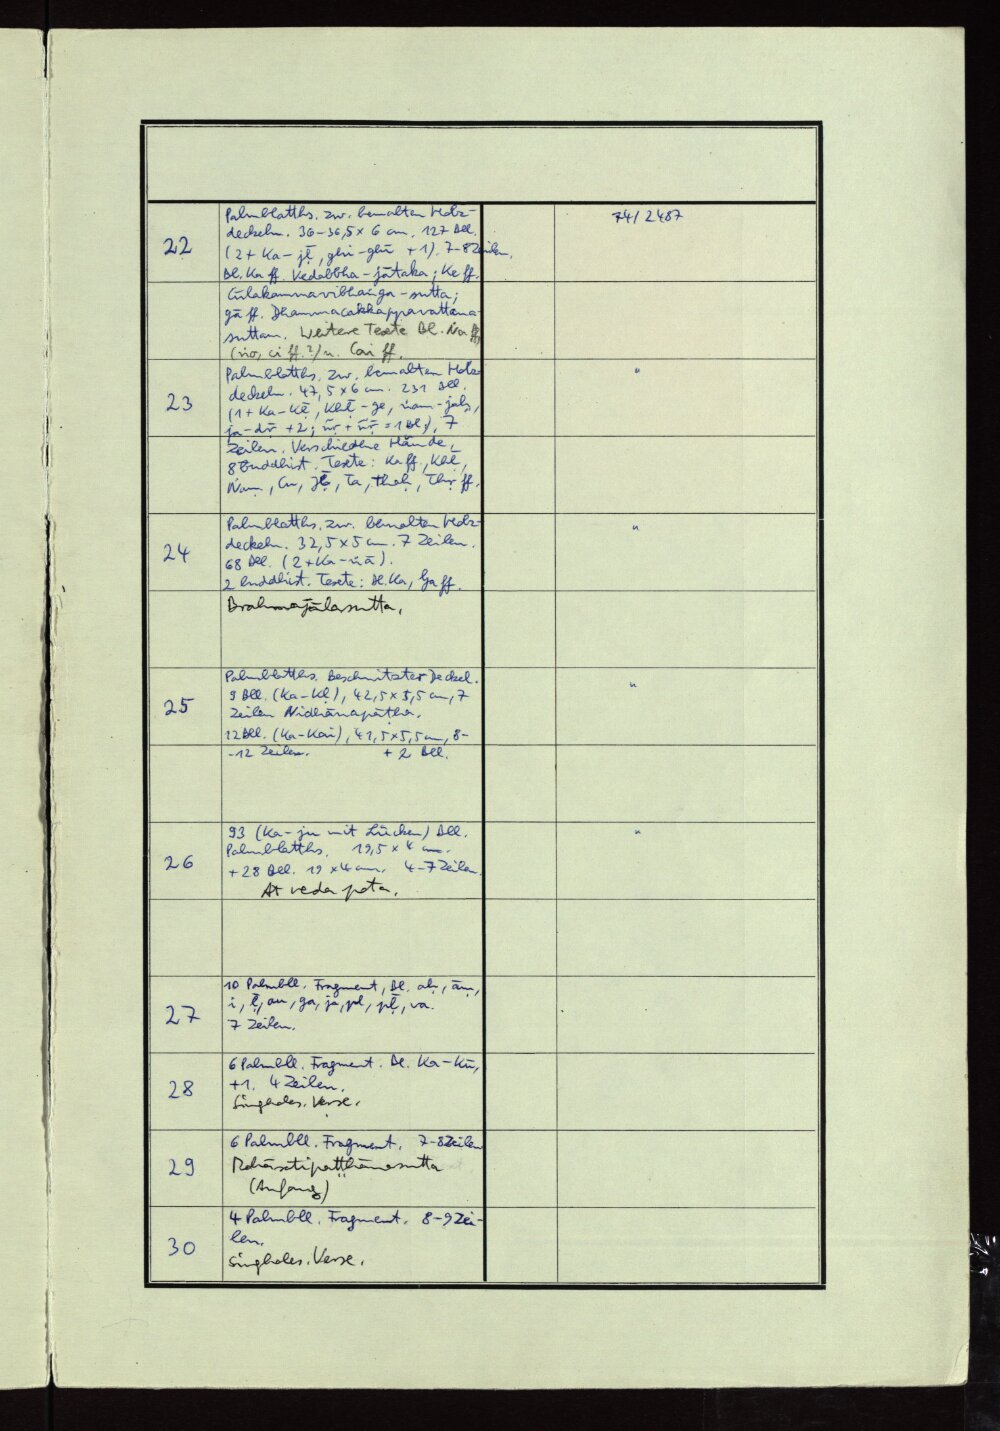 22 Palmblatths. zw. bemalten Holz- 74/2487
deckeln. 36-36,5 x 6 cm. 127 Bll.
(2 + Ka - jḹ, ghi - ghū + 1). 7-8 Zeilen.
Bl. Ka ff. Vedabbha-jātaka; Ke ff.
Cūlakammavibhaṅga-sutta;
gā ff. Dhammacakkappavattana-
suttam. Weitere Texte Bl. Ṅa ff,
(ṅo, ci ff.?) u. Cai ff.
23 Palmblatths. zw. bemalten Holz- "
deckeln. 47,5 x 6 cm. 231 Bll.
(1 + Ka-Kḹ, Khḹ-ge, ṅam-jaḥ,
+ 2; = 1 Bl.), 7
Zeilen. Verschiedene Hände,
8 buddhist. Texte: Ka ff., Khḹ,
Ṅam, Cu, Ṭa, ṭhaḥ, ff.
24 Palmblatths. zw. bemalten Holz- "
deckeln. 32,5 x 5 cm. 7 Zeilen.
68 Bll. (2 + Ka-ṅā).
2 buddhist. Texte: Bl. Ka, Ga ff.
Brahmajālasutta.
25 Palmblatths. Beschnitzter Deckel. "
9 Bll. (Ka-Kḷ), 42,5 x 5,5 cm, 7
Zeilen Nidhānapāṭha.
12 Bll. (Ka-Kai), 41,5 x 5,5 cm, 8-
-12 Zeilen. + 2 Bll.
26 93 (Ka-ju mit Lücken) Bll. "
Palmblatths. 19,5 x 4 cm.
+ 28 Bll. 19 x 4 cm. 4-7 Zeilen.
At veda pota.
27 10 Palmbll. Fragment, Bl. aḥ, āṃ,
i, ḹ, au, ga, ja, pḷ, pḹ, va.
7 Zeilen.
28 6 Palmbll. Fragment. Bl. Ka-Kū,
+1. 4 Zeilen.
Singhales. Verse.
29 6 Palmbll. Fragment. 7-8 Zeilen
Mahāsatipaṭṭhānasutta
(Anfang)
30 4 Palmbll. Fragment. 8-9 Zei-
len.
Singhales. Verse.